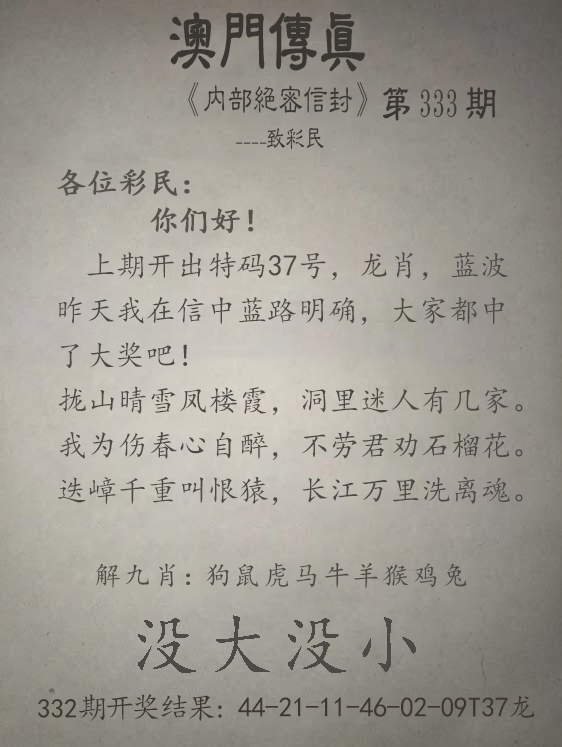 澳門傳真
《内部絕密信封》第333期
----致彩民
各位彩民:
你们好!
上期开出特码37号，龙肖，蓝波
昨天我在信中蓝路明确，大家都中
了大奖吧!
拢山晴雪凤楼霞，洞里迷人有几家。
我为伤春心自醉，不劳君劝石榴花。
迭嶂千重叫恨猿，长江万里洗离魂。
解九肖:狗鼠虎马牛羊猴鸡兔
没大没小
332期开奖结果: 44-21-11-46-02-09T37龙